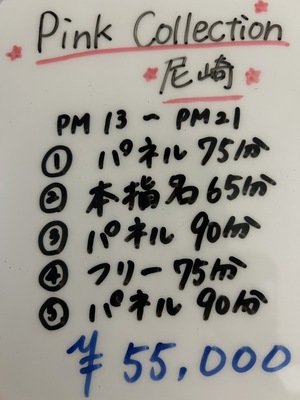 Pink Collection
尼崎
PM 13 ~ PM 21
① パネル 75分
② 本指名 65分
③ パネル 90分
④ フリー 75分
⑤ パネル 90分
¥ 55,000